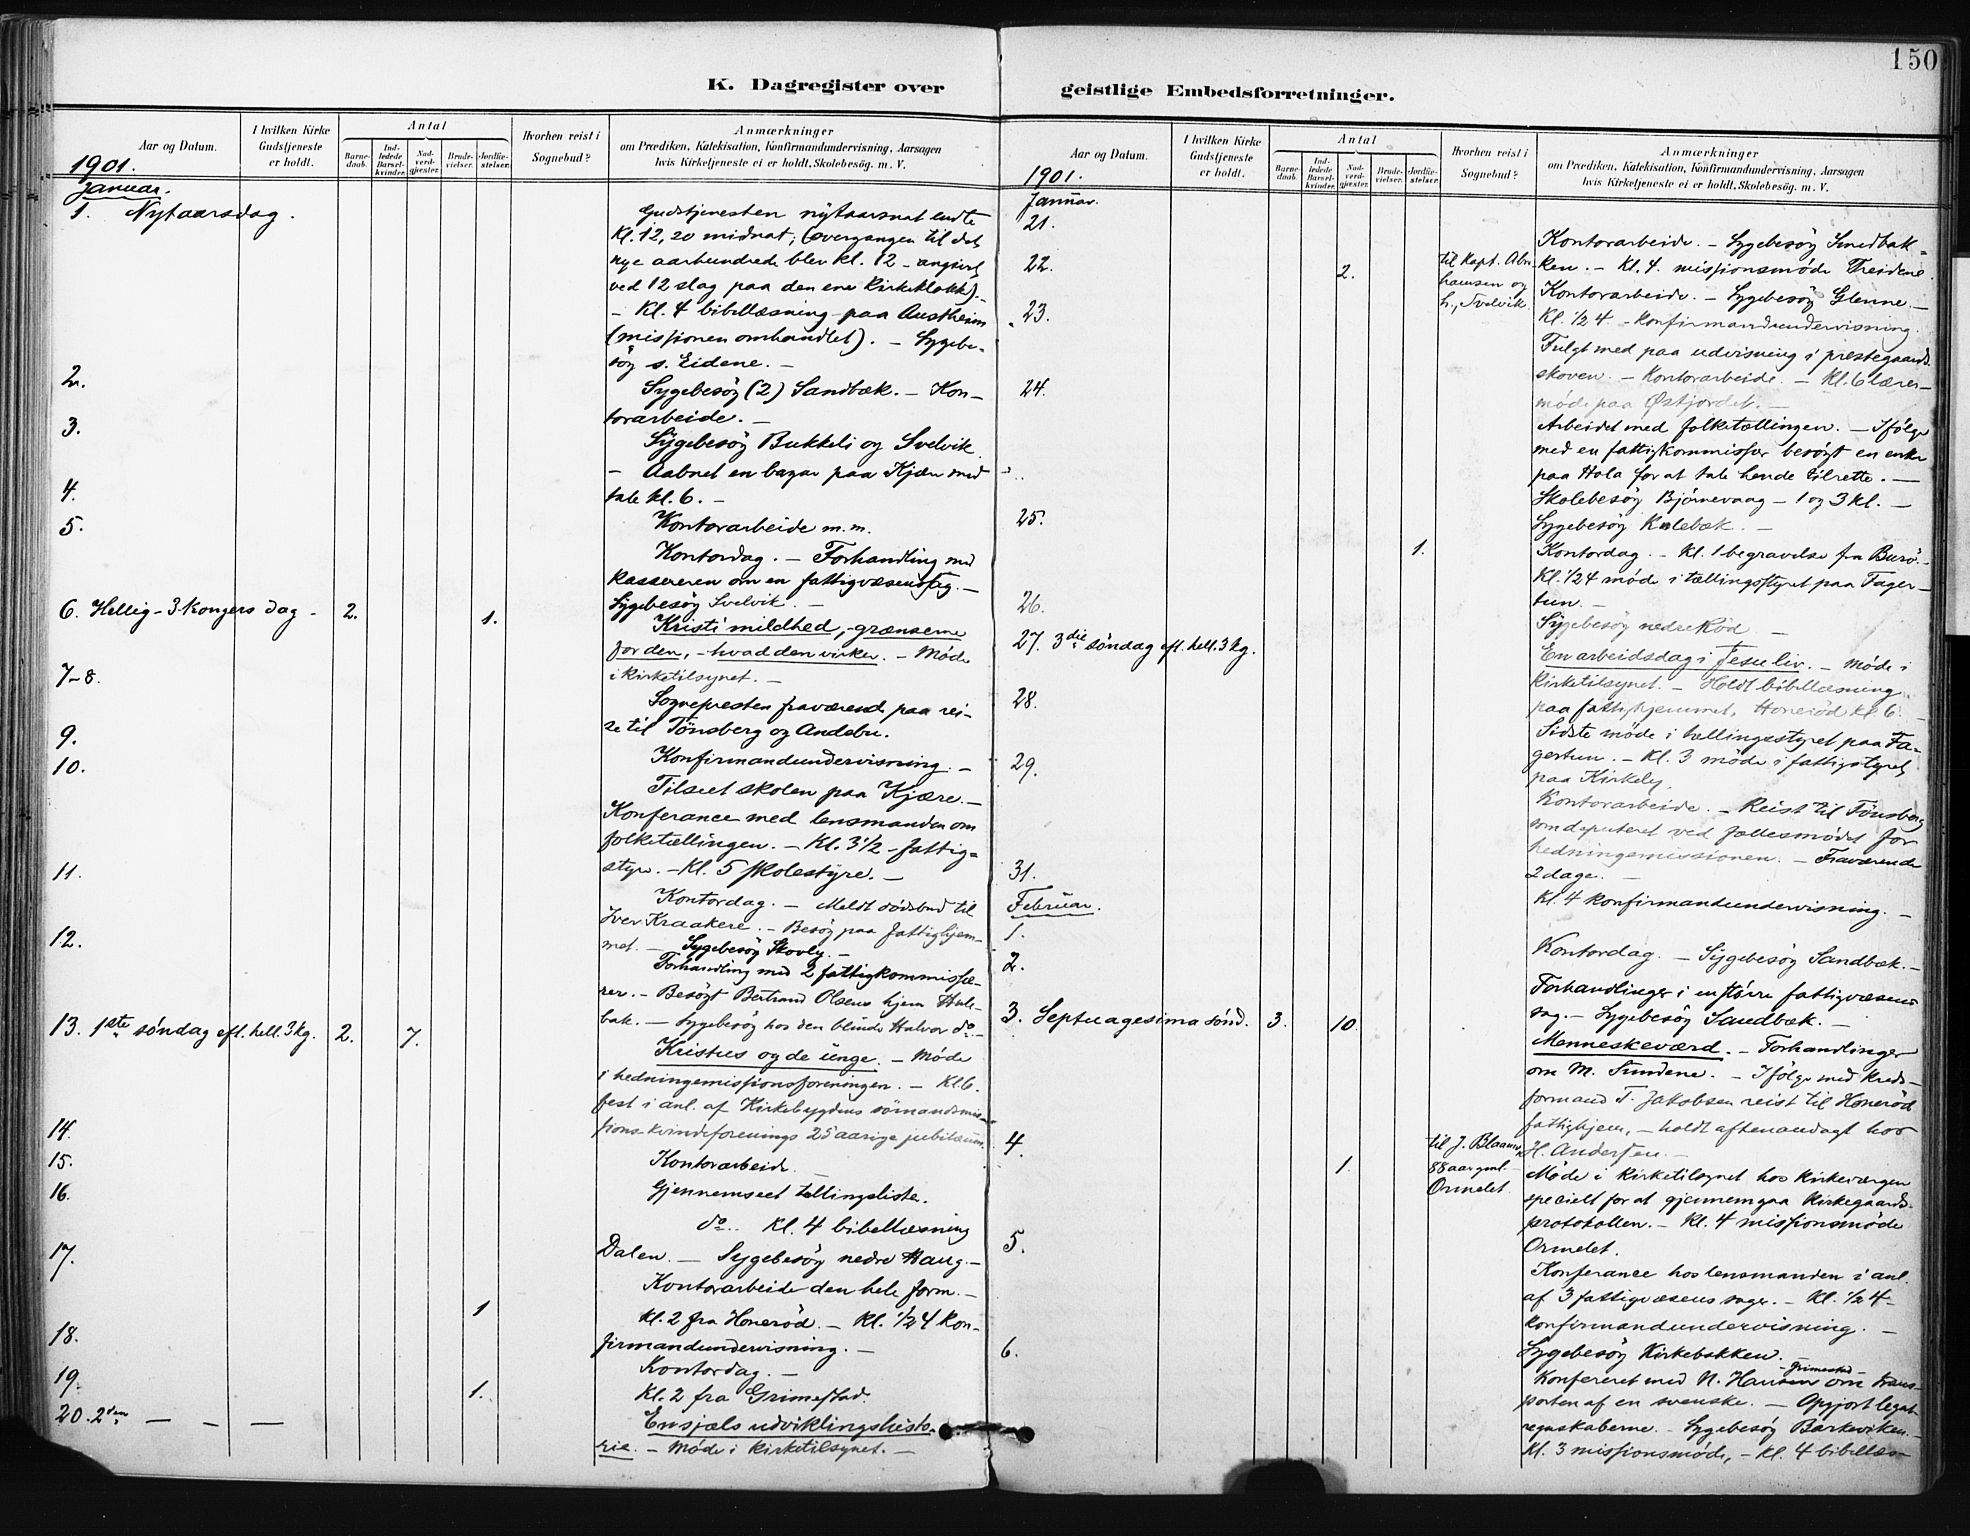 150
K. Dagregister over
geistlige Embedsforretninger.
Aar og Datum.
I hvilken Kirke Gudstjeneste er holdt.
Antal
Barnedaab.
Indledede Barselkvinder.
Nadverdgjester.
Brudevielser.
Jordfæstelser.
Hvorhen reist i Sognebud?
Anmærkninger
om Prædiken, Katekisation, Konfirmandundervisning, Aarsagen
hvis Kirketjeneste ei er holdt, Skolebesøg. m. V.
1901.
Januar.
1. Nytaarsdag.
Gudstjenesten nytaarsnat endte
Kl. 12,20 midnat; (overgangen til det
nye aarhundrede blev kl. 12 - angivet
ved 12 slag paa den ene kirkeklokke). -
- Kl. 4 bibellæsning paa Austheim
(missionen omhandlet). - Sygebe-
søg s. Eidene. -
2.
Sygebesøg (2) Sandbæk. - Kon-
torarbeide. -
3.
Sygebesøg Bukkeli og Svelvik.
- Aabnet en bazar paa Kjær med
tale kl. 6. -
4.
Kontorarbeide m. m.
5.
Kontordag. - Forhandling med
kassereren om en fattigvæsensag. -
Sygebesøg Svelvik. -
6. Hellig-3-kongers dag - 2. 1.
Kristi mildhed, - grænserne
for den, - hvad den virker. - Møde
i kirketilsynet. -
7-8.
Sognepresten fraværende paa rei-
se til Tönsberg og Andebu.
9.
Konfirmandundervisning. -
10.
Tilseet skolen paa Kjære. -
Konferance med lensmanden om
folketællingen. - Kl. 3 1/2 - fattig-
styre. - Kl. 5 skolestyre. -
11.
Kontordag. - Meldt dödsbud til
Iver Kraakere. - Besøg paa fattighjem-
met. - Sygebesøg Skovly. -
12.
Forhandling med 2 fattigkommissæ-
rer. - Besögt Bertrand Olsens hjem Hule-
bak. - Sygebesøg hos den blinde Halvor do. -
13. 1ste søndag eft. hell. 3 kg. 2. 7.
Kristus og de unge. - Møde
i hedningemissionsforeningen. - Kl. 6.
fest i anl. af Kirkebygdens sømandsmis-
sions-kvindeforenings 25 aarige jubilæum.
14.
Kontorarbeide
15.
Gjennemseet tellingsliste.
16.
do. Kl. 4 bibellæsning
Dalen. - Sygebesøg nedre Haug. -
17.
Kontorarbeide den hele form. -
1
Kl. 2 fra Honerød. - Kl. 1/2 4 kon-
firmandundervisning. -
18.
Kontordag. -
19. 1.
Kl. 2 fra Grimestad.
20. 2den - - -
En sjæls udviklingshisto-
rie. - Møde i kirketilsynet. -
Aar og Datum.
I hvilken Kirke Gudstjeneste er holdt.
Antal
Barnedaab.
Indledede Barselkvinder.
Nadverdgjester.
Brudevielser.
Jordfæstelser.
Hvorhen reist i Sognebud?
Anmærkninger
om Prædiken, Katekisation, Konfirmandundervisning, Aarsagen
hvis Kirketjeneste ei er holdt, Skolebesøg. m. V.
1901.
Januar.
21.
Kontorarbeide. - Sygebesøg Smedbak-
ken. - Kl. 4. missionsmøde Treidene.
22. 2. til Kapt. Abra-
hamsen og
h., Svelvik.
Kontorarbeide. - Sygebesøg Glenne. -
23.
Kl. 1/2 4 - konfirmandundervisning.
Fulgt med paa udvisning i præstegaards
skoven. - Kontorarbeide. - Kl. 6 lærer-
møde paa Østjordet. -
24.
Arbeidet med folketællingen. - Ifølge
med en fattigkommissær besøgt en enke
paa Hola for at tale hende tilrette. -
Skolebesøg Bjørnevaag - 1 og 3 kl. -
Sygebesøg Kalebæk. -
25. 1.
Kontordag. - Kl. 1 begravelse fra Burø. -
Kl. 1/2 4 møde i tællingsstyret paa Fager-
tun. -
26.
Sygebesøg nedre Rød -
27. 3die søndag eft. hell. 3 kg.
En arbeidsdag i Jesu liv. - Møde i
kirketilsynet. - Holdt bibellæsning
paa fattighjemmet, Honerød kl. 6. -
28.
Sidste møde i tellingsstyret paa Fa-
gertun. - Kl. 3 møde i fattigstyret
paa Kirkely.
29.
Kontorarbeide. - Reist til Tønsberg
som deputeret ved fællesmødet for
hedningemissionen. - Fraværende
2 dage. -
31.
Kl. 4 konfirmandundervisning. -
Februar.
1.
Kontordag. - Sygebesøg Sandbæk. -
2.
Forhandlinger i en større fattigvæsens
sag. - Sygebesøg Sandbæk. -
3. Septuagesima sønd. 3. 10.
Menneskeværd. - Forhandlinger
om M. Sundene. - Ifølge med kreds-
formand T. Jakobsen reist til Honerød
fattighjem, - holdt aftenandagt hos
H. Andersen. -
4. 1. til J.
88 aar gml. -
Ormelet
Møde i kirketilsynet hos kirkeværgen
specielt for at gjennemgaa kirkegaards-
protokollen. - Kl. 4 missionsmøde
Ormelet.
5.
Konferance hos lensmanden i anl.
af 3 fattigvæsenssager. - Kl. 1/2 4 -
konfirmandundervisning. -
Sygebesøg Kirkebakken. -
6.
Konfereret med N. Hansen Grimestad om trans-
porten af en svenske. - Opgjort legat-
regnskaberne. - Sygebesøg Barkeviken. -
Kl. 3 missionsmøde, - Kl. 4 bibellæs-